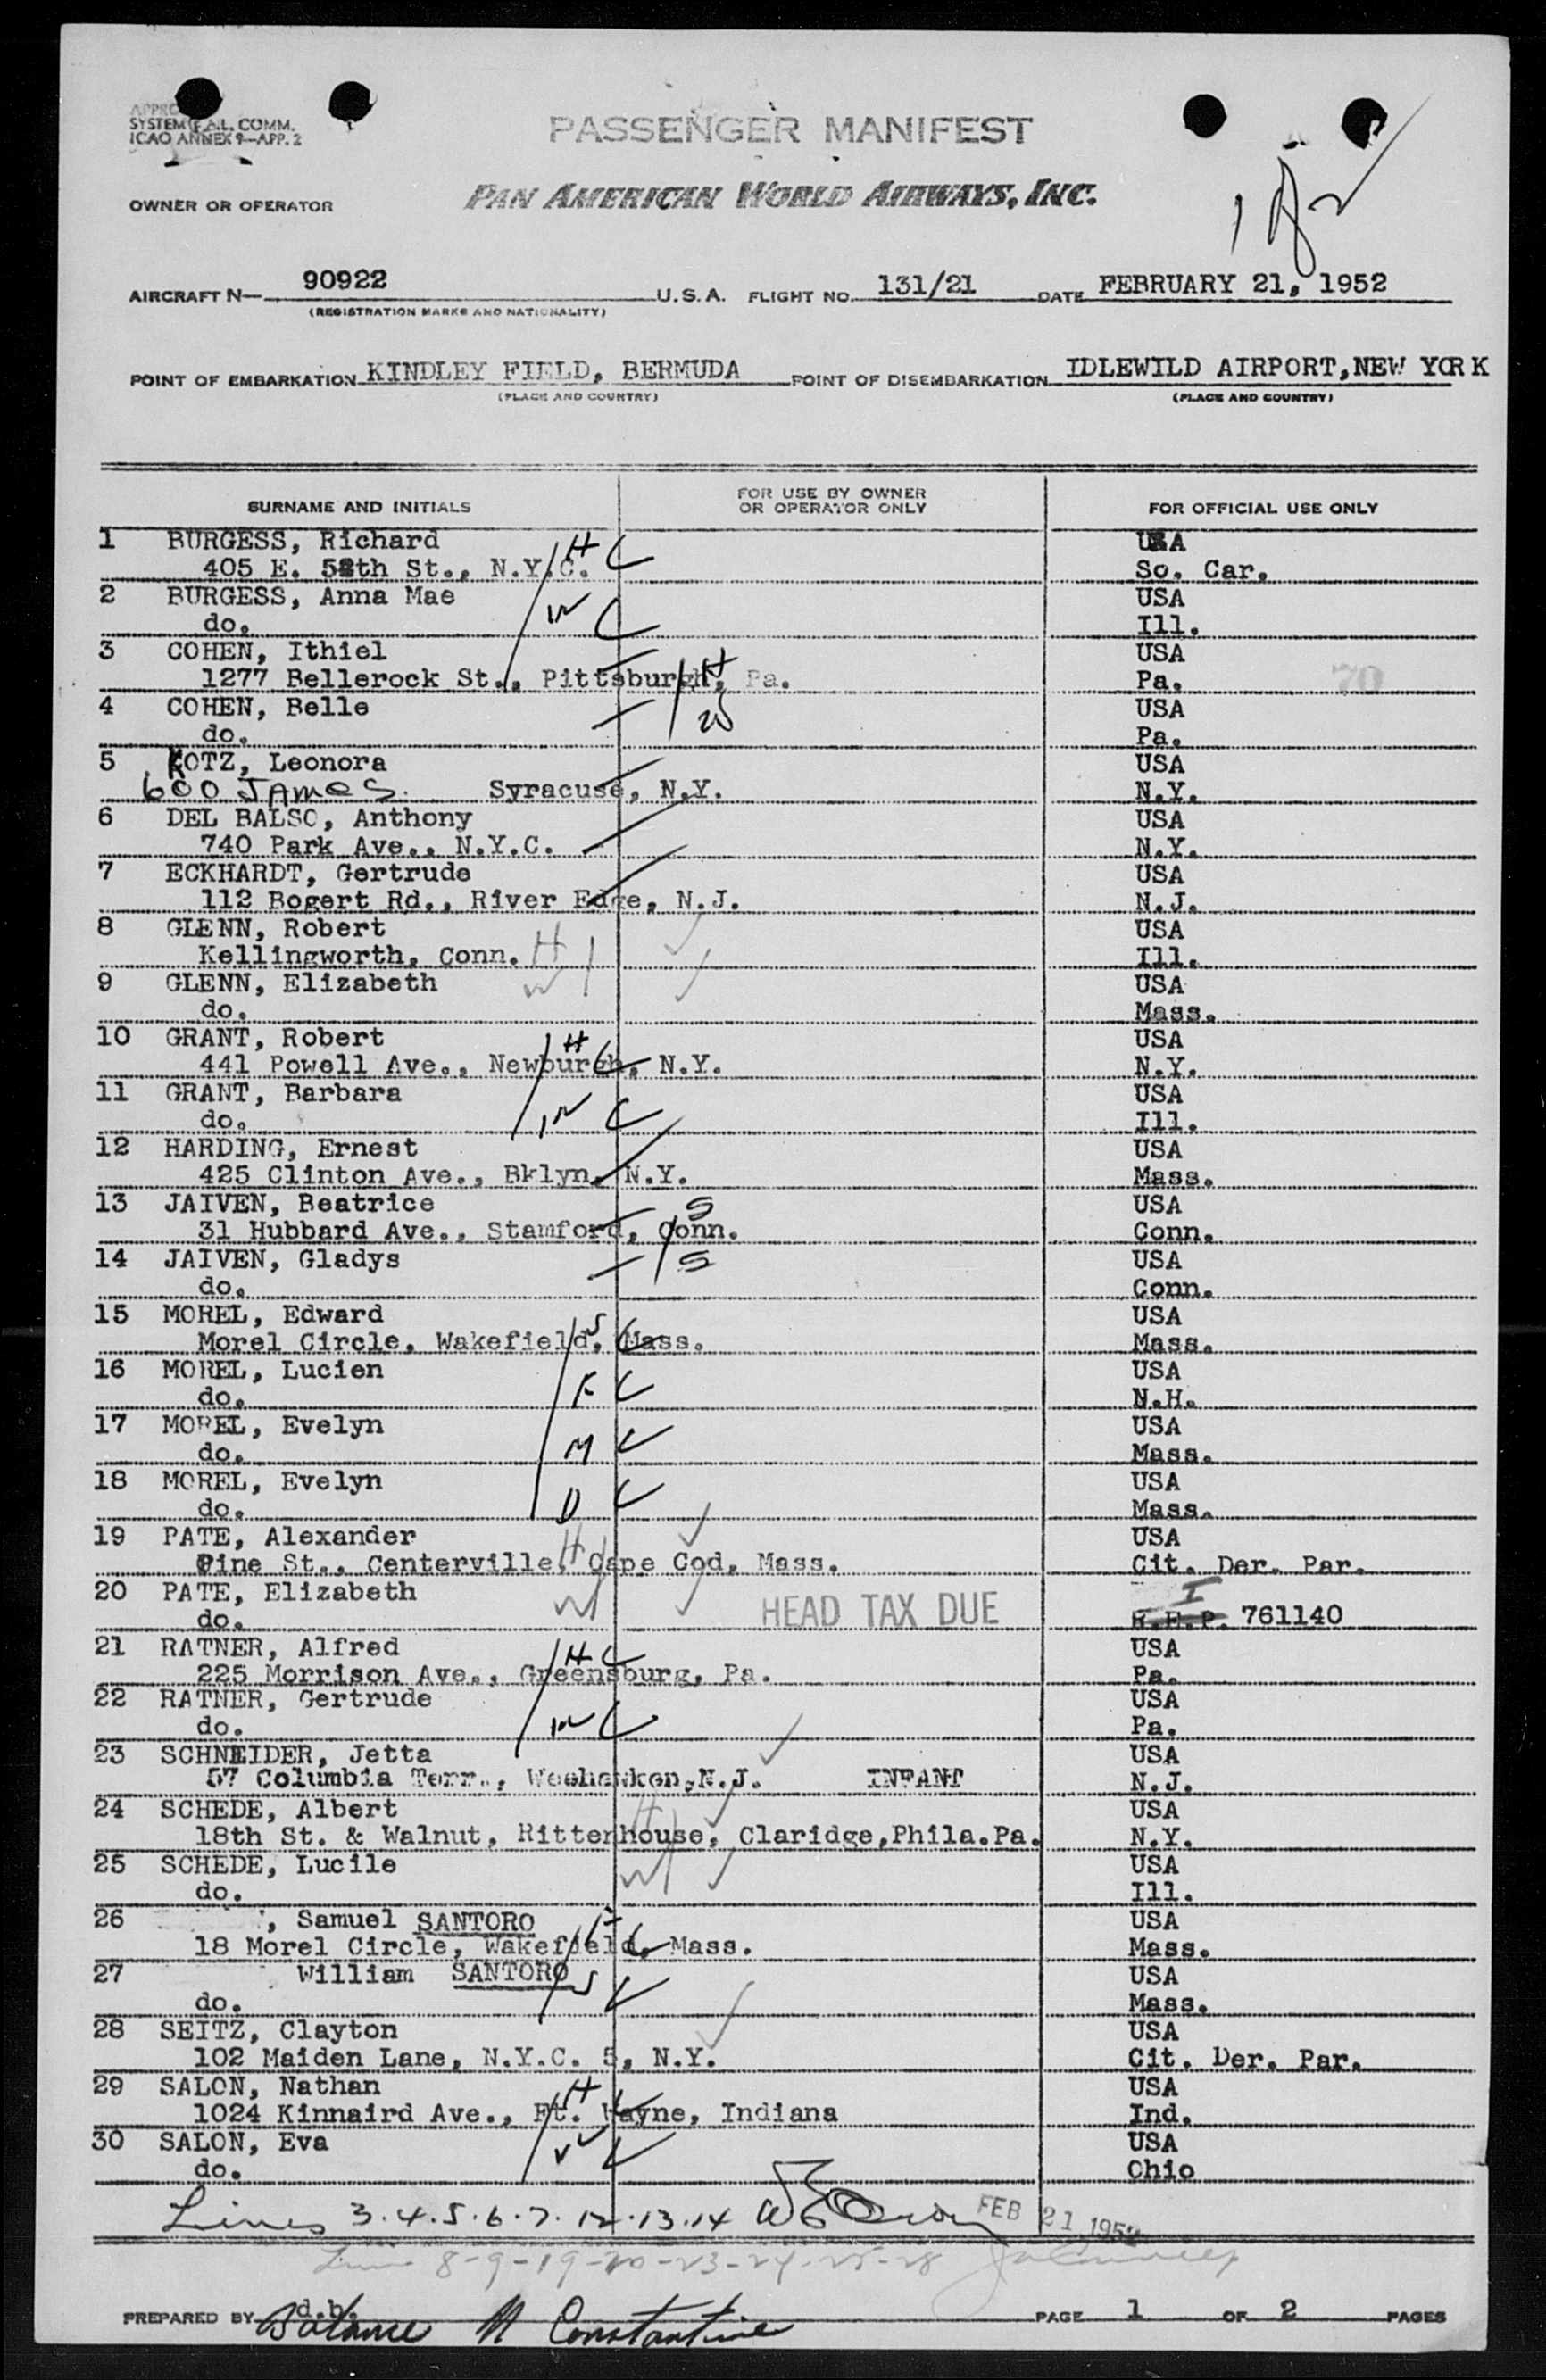 SYSTEM F.A.L. COMM.
ICAO ANNEX 9—APP. 2
PASSENGER MANIFEST
OWNER OR OPERATOR PAN AMERICAN WORLD AIRWAYS, INC.
AIRCRAFT N— 90922 U.S.A. FLIGHT NO. 131/21 DATE FEBRUARY 21, 1952
(REGISTRATION MARKS AND NATIONALITY)
POINT OF EMBARKATION KINDLEY FIELD, BERMUDA POINT OF DISEMBARKATION IDLEWILD AIRPORT, NEW YORK
(PLACE AND COUNTRY) (PLACE AND COUNTRY)
SURNAME AND INITIALS FOR USE BY OWNER OR OPERATOR ONLY FOR OFFICIAL USE ONLY
1 BURGESS, Richard H USA
405 E. 58th St., N.Y.C. So. Car.
2 BURGESS, Anna Mae W USA
do. Ill.
3 COHEN, Ithiel H USA
1277 Bellerock St., Pittsburgh, Pa. Pa. 70
4 COHEN, Belle W USA
do. Pa.
5 KOTZ, Leonora USA
600 JAMES Syracuse, N.Y. N.Y.
6 DEL BALSO, Anthony USA
740 Park Ave., N.Y.C. N.Y.
7 ECKHARDT, Gertrude USA
112 Bogert Rd., River Edge, N.J. N.J.
8 GLENN, Robert USA
Kellingworth, Conn. H Ill.
9 GLENN, Elizabeth W USA
do. Mass.
10 GRANT, Robert H USA
441 Powell Ave., Newburgh, N.Y. N.Y.
11 GRANT, Barbara W USA
do. Ill.
12 HARDING, Ernest USA
425 Clinton Ave., Bklyn, N.Y. Mass.
13 JAIVEN, Beatrice S USA
31 Hubbard Ave., Stamford, Conn. Conn.
14 JAIVEN, Gladys S USA
do. Conn.
15 MOREL, Edward S USA
Morel Circle, Wakefield, Mass. Mass.
16 MOREL, Lucien F USA
do. N.H.
17 MOREL, Evelyn M USA
do. Mass.
18 MOREL, Evelyn D USA
do. Mass.
19 PATE, Alexander H USA
Pine St., Centerville, Cape Cod, Mass. Cit. Der. Par.
20 PATE, Elizabeth W HEAD TAX DUE I
do. R.E.P. 761140
21 RATNER, Alfred H USA
225 Morrison Ave., Greensburg, Pa. Pa.
22 RATNER, Gertrude W USA
do. Pa.
23 SCHNEIDER, Jetta USA
57 Columbia Terr., Weehawken, N.J. INFANT N.J.
24 SCHEDE, Albert H USA
18th St. & Walnut, Rittenhouse, Claridge, Phila. Pa. N.Y.
25 SCHEDE, Lucile W USA
do. Ill.
26 , Samuel SANTORO F USA
18 Morel Circle, Wakefield, Mass. Mass.
27 William SANTORO S USA
do. Mass.
28 SEITZ, Clayton USA
102 Maiden Lane, N.Y.C. 5, N.Y. Cit. Der. Par.
29 SALON, Nathan H USA
1024 Kinnaird Ave., Ft. Wayne, Indiana Ind.
30 SALON, Eva W USA
do. Ohio
Lines 3.4.5.6.7.12.13.14 FEB 21 1952
Line 8-9-19-20-23-24-25-28
PREPARED BY d.b. Balance N Constantine PAGE 1 OF 2 PAGES